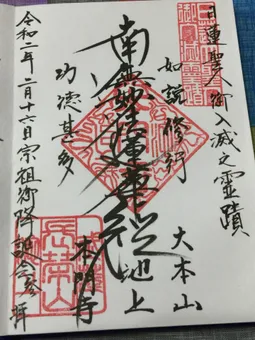 日蓮聖人御入滅之霊蹟
如説修行
南無妙法蓮華経
功徳甚多
大本山
池上
本門寺
令和二年二月十六日宗祖御降誕会参拝
長栄山